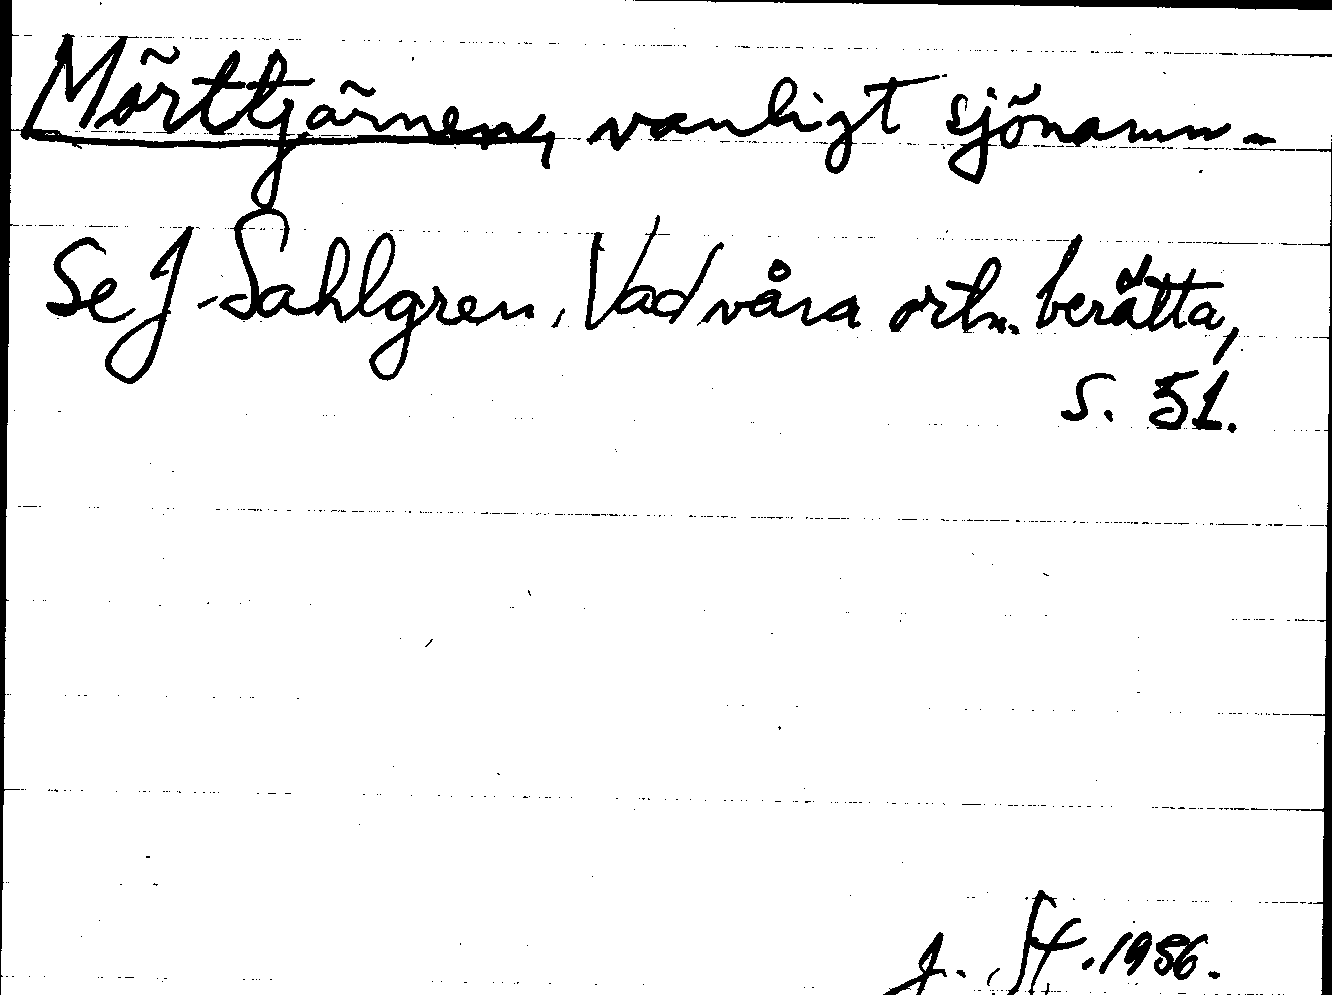 Mörttjärnen, vanligt sjönamn.-
Se J. Sahlgren, Vad våra ortn. berätta,
s. 51.
J. St. 1986.